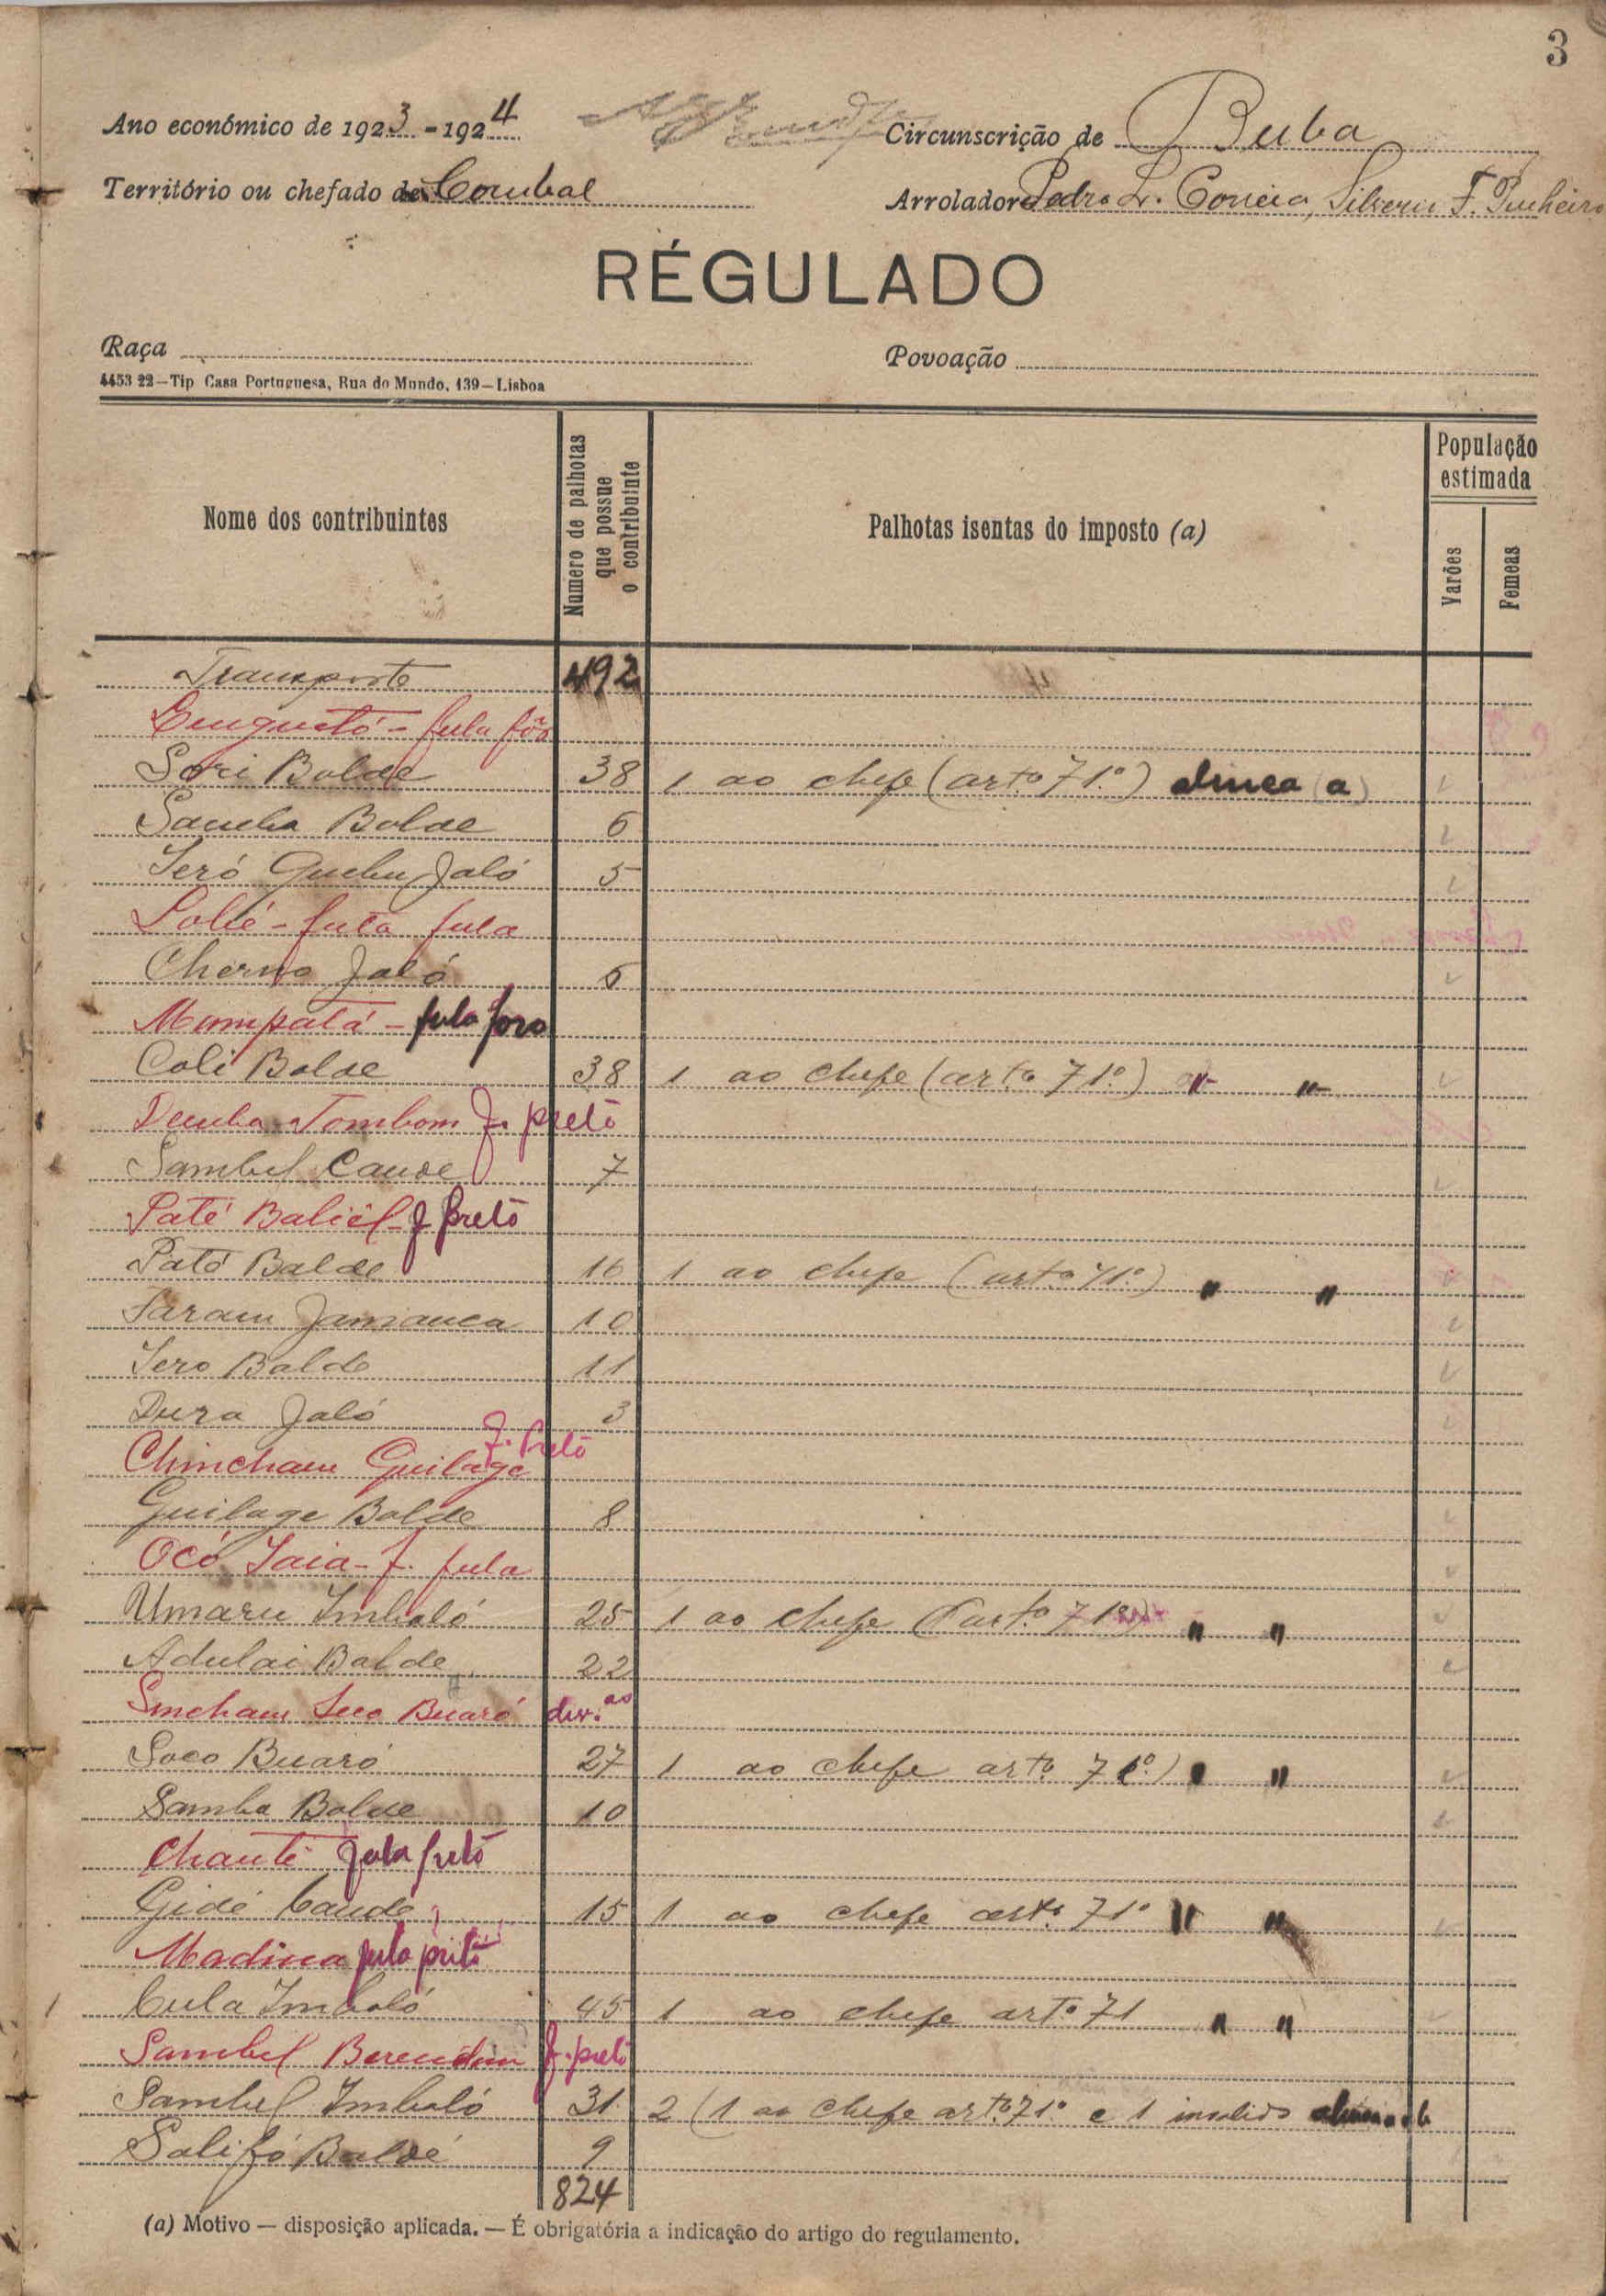 3
Ano económico de 1923-1924
Circunscrição de Buba
Território ou chefado de Corubal
Arrolador Pedro L. Correia, Silverio F. Pinheiro
RÉGULADO
Raça
Povoação
4453 22—Tip Casa Portuguesa, Rua do Mundo, 139—Lisboa
Nome dos contribuintes
Numero de palhotas que possue o contribuinte
Palhotas isentas do imposto (a)
População estimada
Varões
Femeas
Transporte 492
fula fôro
Sori Balde 38 1 ao chefe (artº 71º) alinea (a)
Samba Balde 6
Seró Jaló 5
Lolié - futa fula
Cherno Jaló 6
Mampatá - fula foro
Coli Balde 38 1 ao chefe (artº 71º) " "
Demba Tombom f. preto
Sambel Cande 7
Paté Baliél - f preto
Paté Balde 16 1 ao chefe (artº 71º) " "
Jamanca 10
Sero Balde 11
Dura Jaló 3
Chincham Guilage f. preto
Guilage Balde 8
Ocó Iaia - f. fula
Umaru Imbaló 25 1 ao chefe (artº 71º) " "
Adulai Balde 22
Sincham Seco Buaró div.as
Soco Buaró 27 1 ao chefe artº 71º) " "
Samba Balde 10
Chanté fula preto
Gidé Candé 15 1 ao chefe artº 71º " "
Madina fula preto
Cula Imbaló 45 1 ao chefe artº 71 " "
Sambel f. preto
Sambel Imbaló 31 2 (1 ao chefe artº 71º e 1 invalido alinea a e b
Salifó Baldé 9
824
(a) Motivo — disposição aplicada. — É obrigatória a indicação do artigo do regulamento.